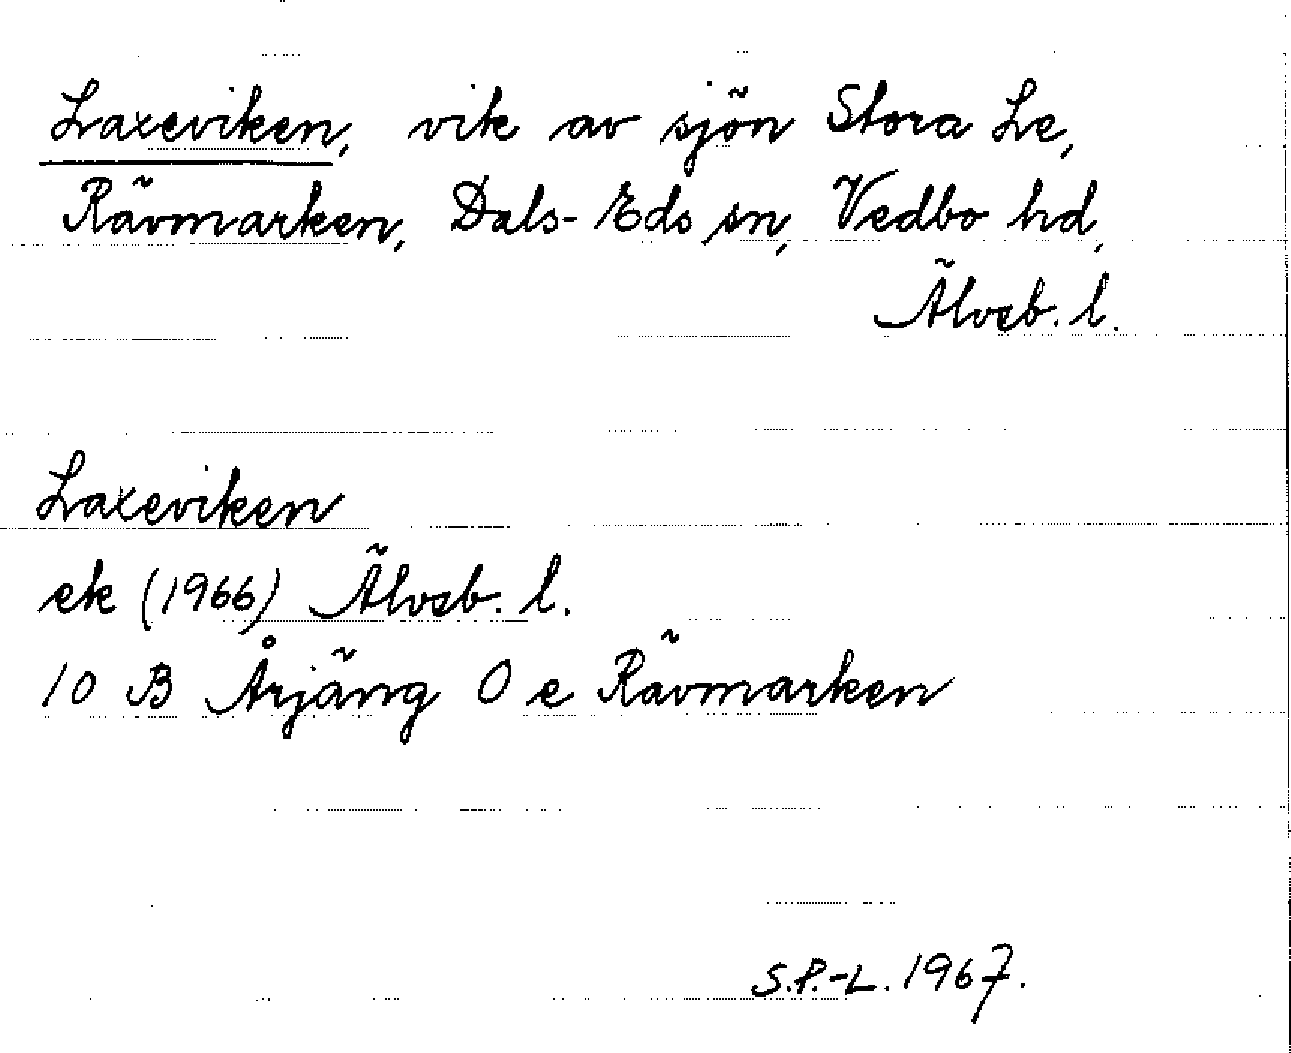 Laxeviken, vik av sjön Stora Le,
Rävmarken, Dals-Eds sn, Vedbo hd,
Älvsb. l.
Laxeviken
ek (1966) Älvsb. l.
10 B Årjäng O e Rävmarken
S.P.-L. 1967.